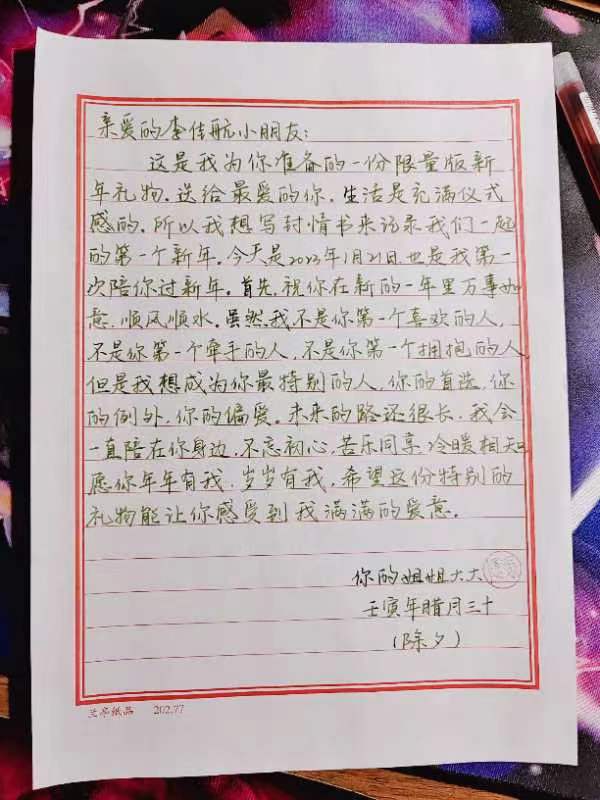 亲爱的李佳航小朋友：
这是我为你准备的一份限量版新
年礼物，送给最爱的你，生活是充满仪式
感的，所以我想写封情书来记录我们一起
的第一个新年，今天是2023年1月21日也是我第一
次陪你过新年，首先，祝你在新的一年里万事如
意，顺风顺水，虽然我不是你第一个喜欢的人，
不是你第一个牵手的人，不是你第一个拥抱的人
但是我想成为你最特别的人，你的首选，你
的例外，你的偏爱，未来的路还很长，我会
一直陪在你身边，不忘初心，苦乐同享，冷暖相知
愿你年年有我，岁岁有我，希望这份特别的
礼物能让你感受到我满满的爱意。
你的姐姐大大
壬寅年腊月三十
（除夕）
兰亭纸品 202.77